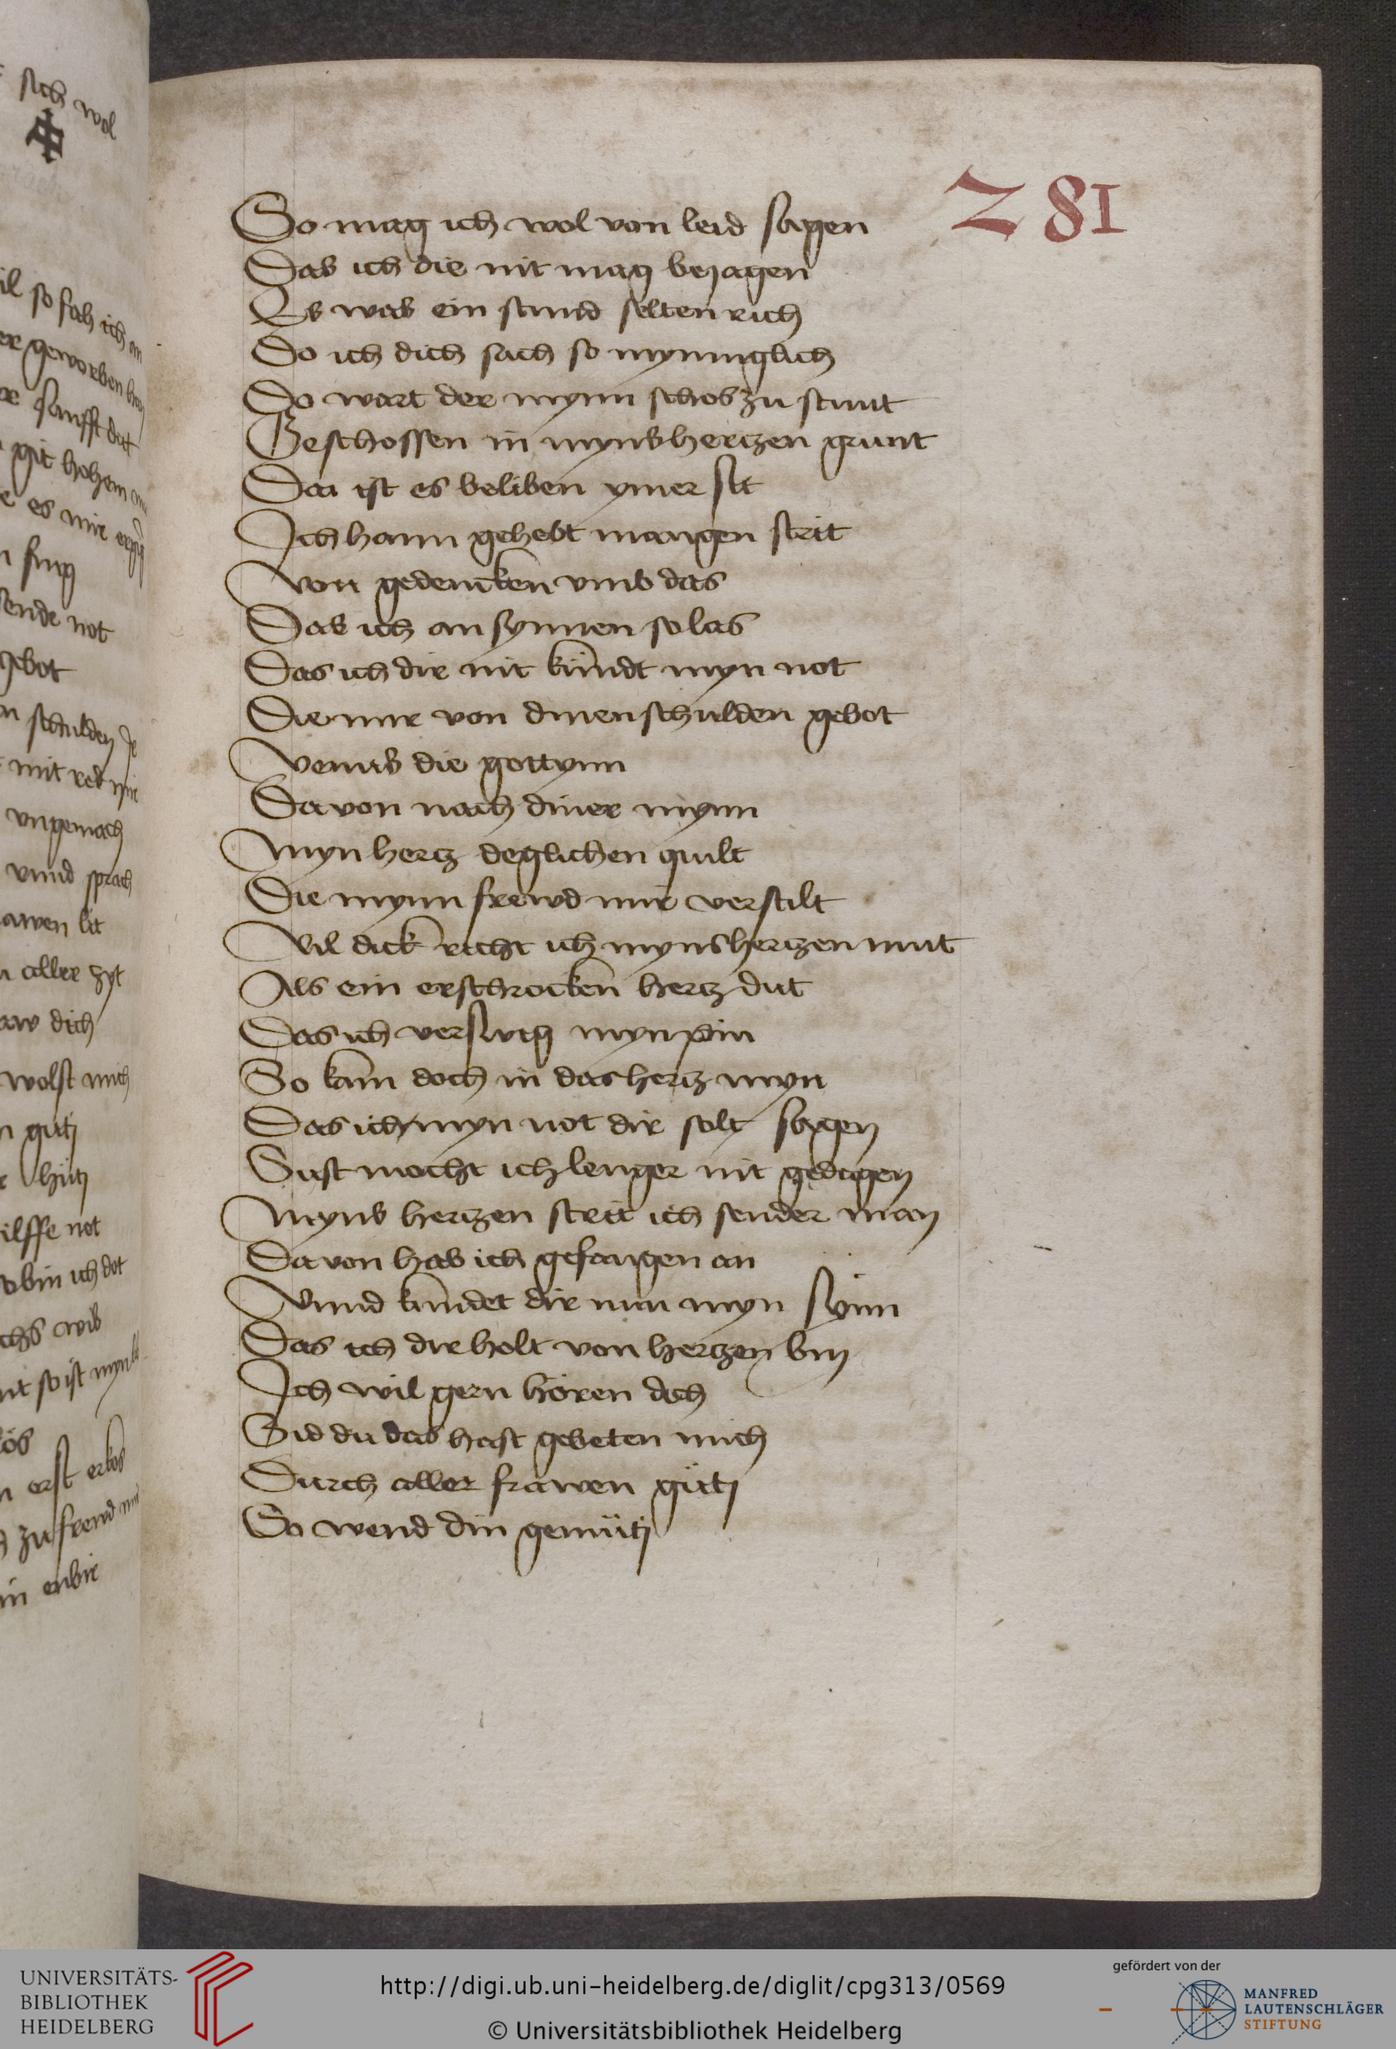 281
So mag ich wol von leid sagen
Das ich die nit mag bejagen
Es was ein stund selten rich
Do ich dich sach so mynnglich
Do wart der mynn schos zu stunt
Geschossen in myns hertzen grunt
Da ist es beliben ymer sit
Ich hann gehebt mangen strit
Von gedencken vmb das
Das ich an synnen so las
Das ich dir nit kündt myn not
Die mir von dinen schulden gebot
Venus die gottynn
Da von nach diner mynn
Myn hertz deglichen quilt
Die mynn frewd mir verstilt
Vil dick richt ich myns hertzen mut
Als ein erschrocken hertz dut
Das ich verswig myn pin
So kam doch in das hertz myn
Das ich myn not dir solt sagen
Sust mocht ich lenger nit gedagen
Myns hertzen strit ich sender man
Da von hab ich gefangen an
Vnnd kundet dir nun myn synn
Das ich dir holt von hertzen bin
Ich wil gern hören dich
Sid du das hast gebeten mich
Durch aller frawen güti
So wend din gemüti
sich wol
il so fah ich an
er geworben
sanfft dut
git hohem
es mir
sing
sende not
gebot
schulden
mit red
vngemach
vnnd sprach
awen lit
aller zyt
dich
wolst mich
güti
hüti
ilffe not
bin ich dot
wib
nit so ist myn
erst erkos
zu frewd
enbir
UNIVERSITÄTS-
BIBLIOTHEK
HEIDELBERG
http://digi.ub.uni-heidelberg.de/diglit/cpg313/0569
© Universitätsbibliothek Heidelberg
gefördert von der
MANFRED
LAUTENSCHLÄGER
STIFTUNG